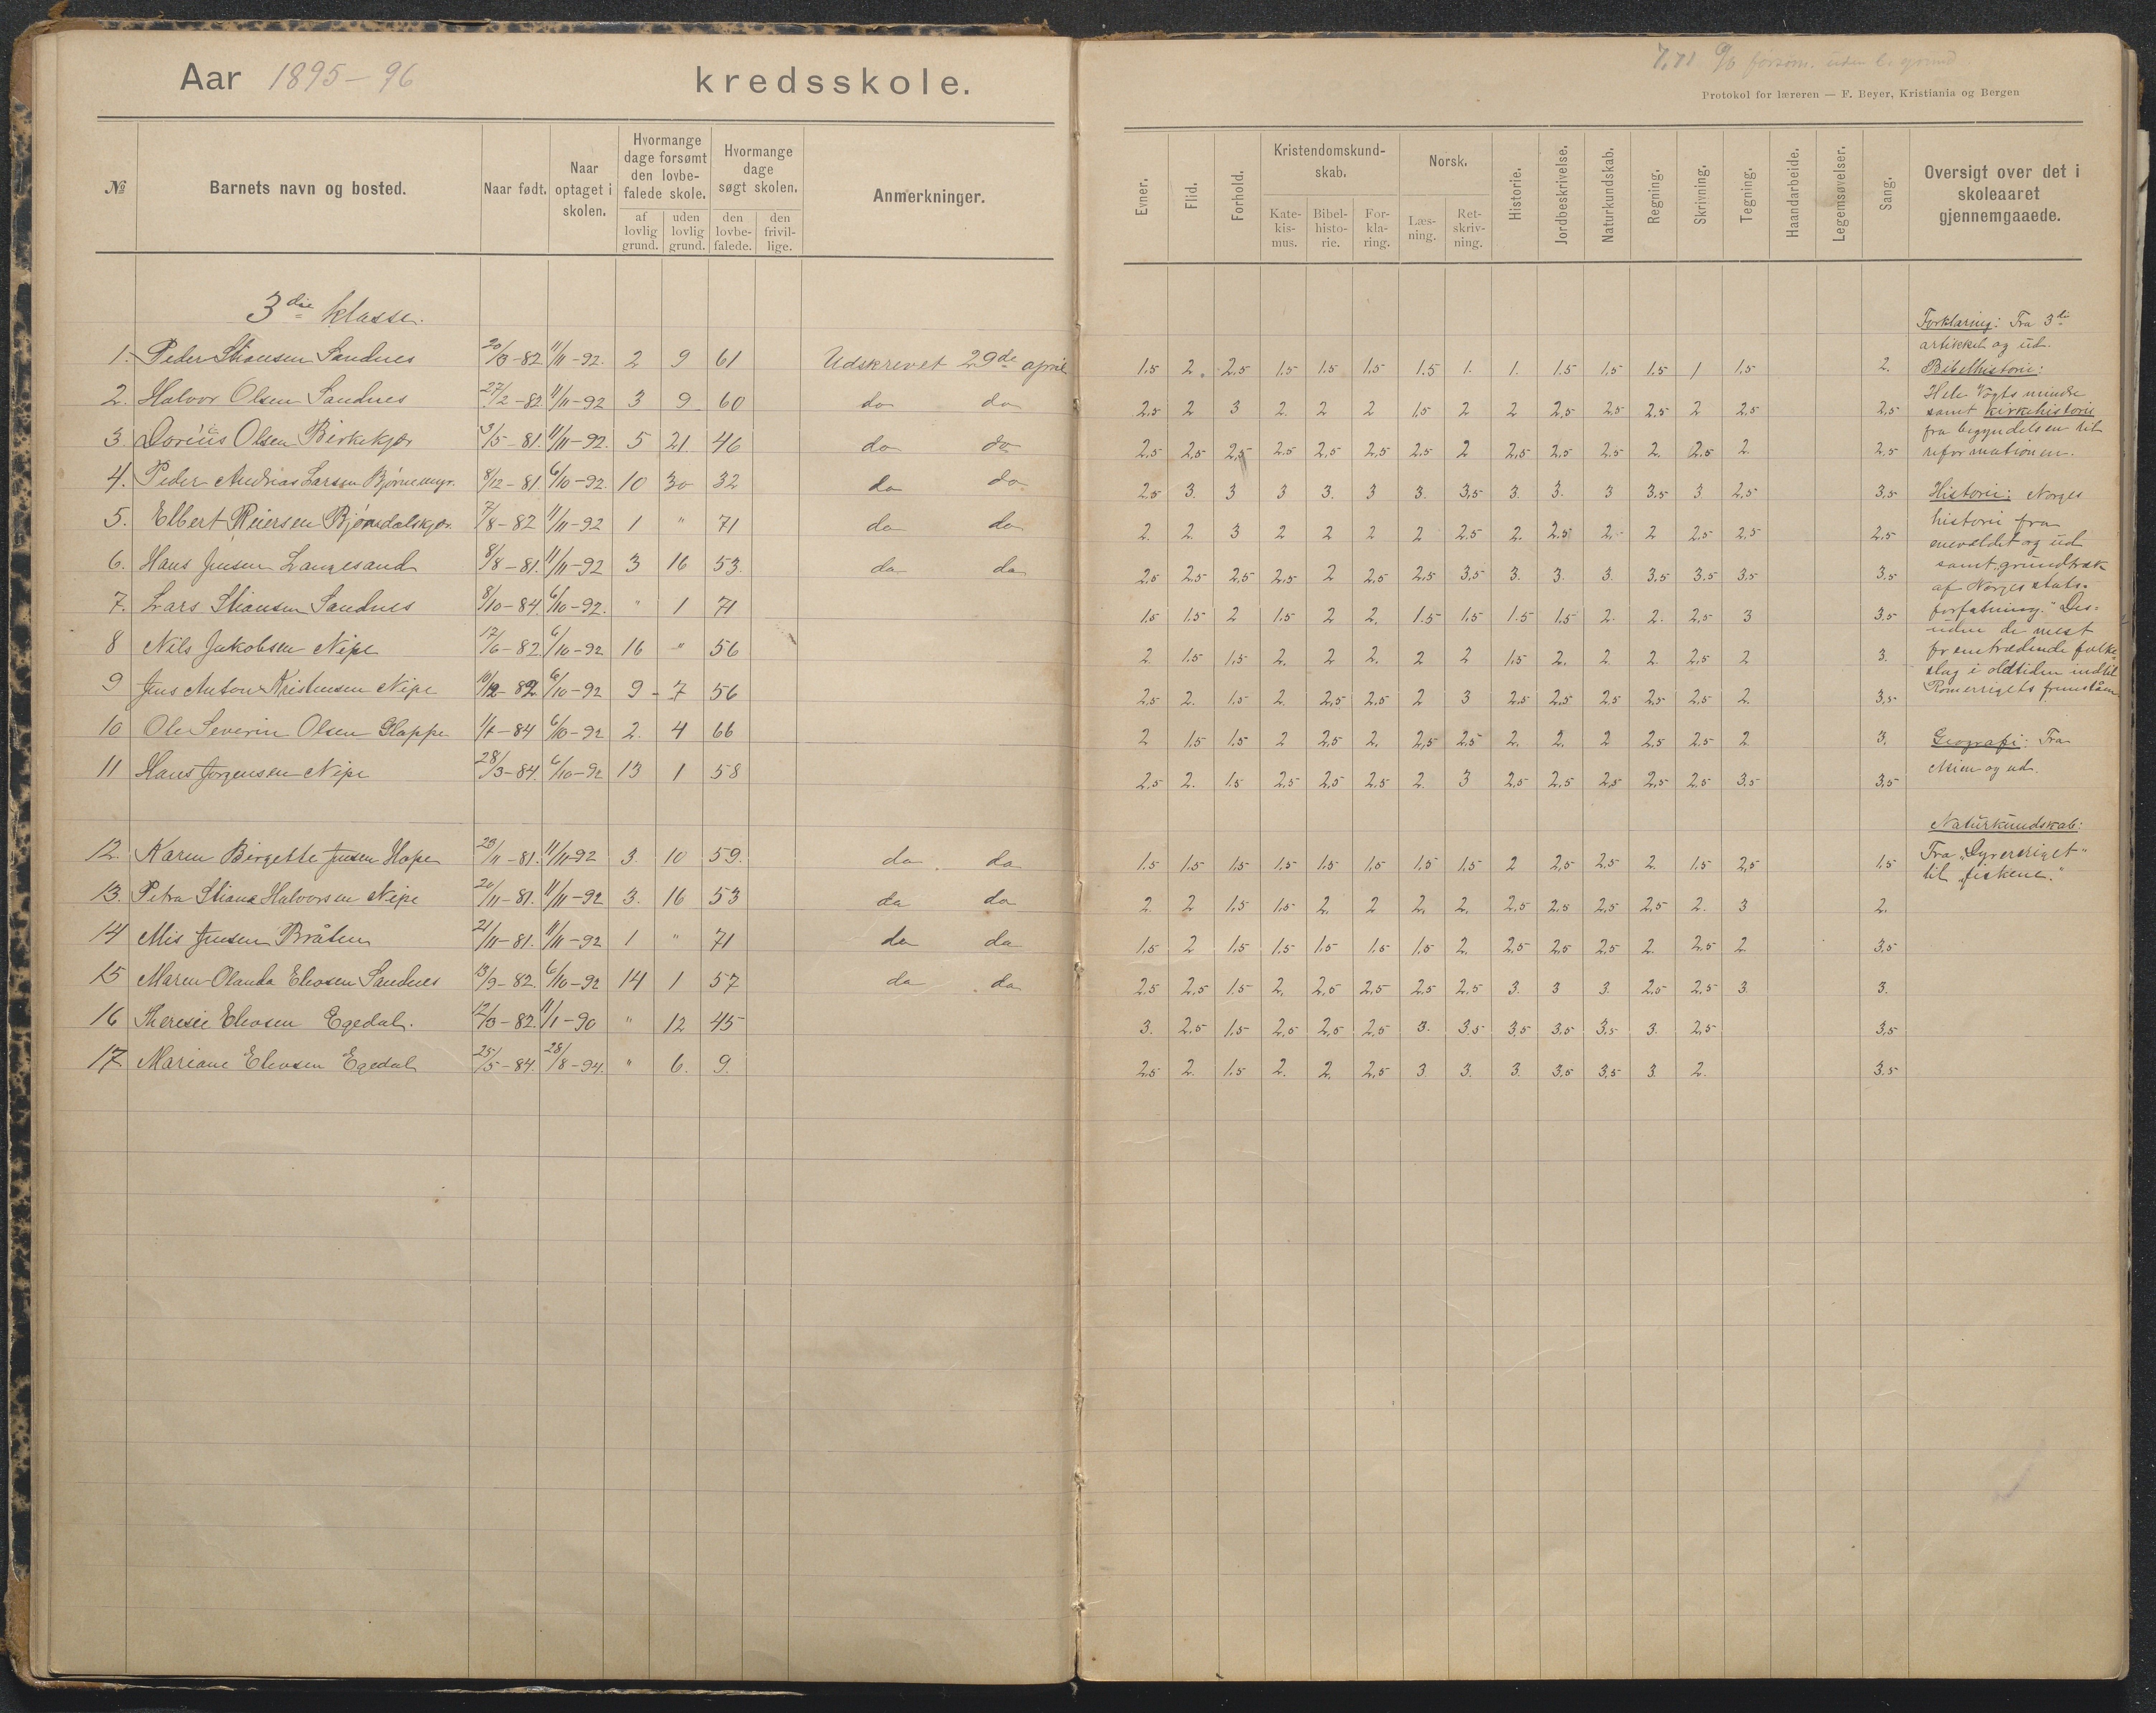 Aar 1895-96 kredsskole.
№ Barnets navn og bosted. Naar født. Naar optaget i skolen. Hvormange dage forsømt den lovbefalede skole. af lovlig grund. uden lovlig grund. Hvormange dage søgt skolen. den lovbefalede. den frivillige. Anmerkninger.
3die klasse.
1. Peder Stiansen Sandnes 20/3-82 11/11-92. 2 9 61 Udskrevet 29de april
2. Halvor Olsen Sandnes 27/2-82. 11/11-92 3 9 60 do do
3. Dorius Olsen Birkekjær 9/5-81. 11/11-92. 5 21. 46 do do
4. Peder Andreas Larsen Bjørnemyr. 8/12-81. 6/10-92. 10 30 32 do do
5. Elbert Reiersen Bjørndalskjær. 7/8-82 11/11-92 1 " 71 do do
6. Hans Jensen Langesand 8/8-81. 11/11-92 3 16 53. do do
7. Lars Stiansen Sandnes 8/10-84 6/10-92. " 1 71
8 Nils Jakobsen Nipe 17/6-82. 6/10-92 16 " 56
9 Jens Anton Kristensen Nipe 10/12-82 6/10-92 9 - 7 56
10 Ole Severin Olsen Glappe 1/7-84 6/10-92 2. 4 66
11 Hans Jørgensen Nipe 28/3-84. 6/10-92 13 1 58
12. Karen Birgette Jensen Hope 29/11-81. 11/11-92 3. 10 59. do do
13. Petra Stiana Halvorsen Nipe 20/11-81. 11/11-92 3. 16 53 do do
14 Mis Jensen Bråten 21/11-81. 11/11-92 1 " 71 do do
15 Maren Olanda Elevsen Sandnes 13/9-82. 6/10-92 14 1 57 do do
16 Theresie Elevsen Egedal. 12/3-82. 11/1-90 " 12 45
17. Mariane Elevsen Egedal 25/5-84. 28/8-94. " 6. 9.
7,71 % forsøm. uden l. grund
Protokol for læreren — F. Beyer, Kristiania og Bergen
Evner. Flid. Forhold. Kristendomskundskab. Katekismus. Bibelhistorie. Forklaring. Norsk. Læsning. Retskrivning. Historie. Jordbeskrivelse. Naturkundskab. Regning. Skrivning. Tegning. Haandarbeide. Legemsøvelser. Sang. Oversigt over det i skoleaaret gjennemgaaede.
1.5 2. 2.5 1.5 1.5 1.5 1.5 1. 1. 1.5 1.5 1.5 1 1.5 2.
2,5 2 3 2. 2 2 1,5 2 2 2,5 2,5 2,5 2 2,5 2,5
2,5 2,5 2,5 2.5 2,5 2,5 2.5 2 2,5 2,5 2,5 2. 2,5 2. 2,5
2,5 3. 3 3 3. 3 3. 3,5 3. 3. 3 3.5 3 2,5 3,5
2. 2. 3 2 2 2 2 2.5 2. 2.5 2. 2 2,5 2,5 2.5
2,5 2,5 2,5 2,5 2 2,5 2,5 3,5 3. 3. 3. 3,5 3.5 3,5 3.5
1.5 1.5 2 1.5 2 2. 1.5 1,5 1.5 1.5 2. 2. 2,5 3 3,5
2. 1.5 1,5 2. 2 2. 2 2 1.5 2. 2. 2. 2,5 2 3.
2.5 2. 1.5 2. 2,5 2,5 2 3 2.5 2,5 2,5 2,5 2,5 2. 3,5
2 1.5 1.5 2 2,5 2, 2,5 2.5 2. 2. 2 2.5 2.5 2 3.
2,5 2. 1.5 2,5 2,5 2,5 2. 3 2,5 2,5 2,5 2,5 2,5 3.5 3,5
1.5 1.5 1.5 1.5 1.5 1,5 1,5 1,5 2 2,5 2,5 2. 1.5 2,5 1,5
2. 2 1.5 1.5 2. 2 2. 2. 2,5 2,5 2,5 2,5 2. 3 2.
1.5 2 1.5 1.5 1.5 1.5 1,5 2. 2.5 2,5 2,5 2. 2.5 2 3.5
2.5 2,5 1.5 2, 2,5 2,5 2,5 2,5 3. 3 3. 2,5 2,5 3. 3.
3. 2.5 1.5 2,5 2,5 2,5 3. 3.5 3,5 3.5 3,5 3. 2,5 3,5
2.5 2. 1.5 2. 2. 2,5 3 3. 3. 3,5 3,5 3. 2. 3.5
Forklaring: Fra 3die
artikkel og ud.
Bibelhistorie:
Hele Vogts mindre
samt kirkehistorie
fra begyndelsen til
reformationen.
Historie: Norges
historie fra
enevældet og ud
samt grundtræk
af Norges stats-
forfatning. Des-
uden de mest
fremtrædende folke-
slag i oldtiden indtil
Romerrigets fremståen
Geografi: Fra
Asien og ud.
Naturkundskab:
Fra "Dyreriget"
til "fiskene."